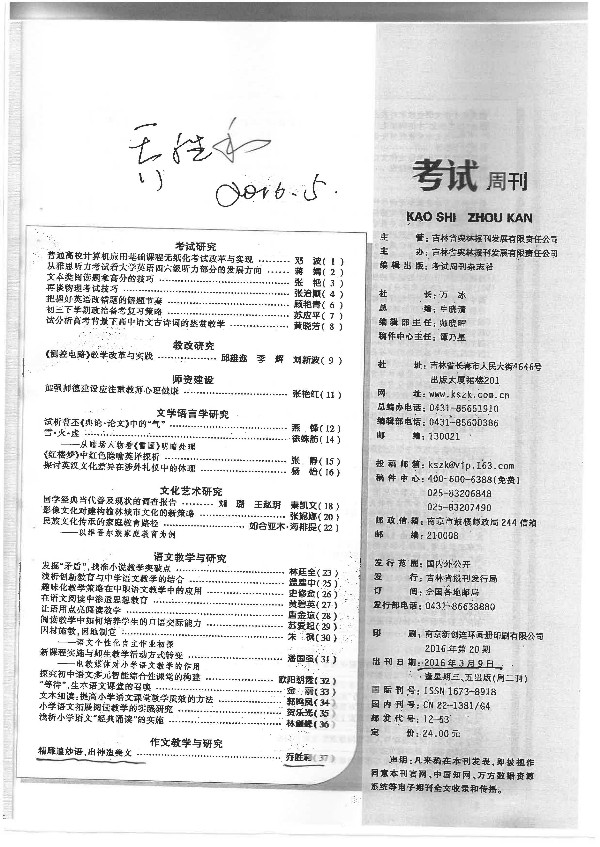 2016.5.
考试研究
普通高校计算机应用基础课程无纸化考试改革与实践 邓 波(1)
从雅思听力考试看大学英语四六级听力部分的发展方向 蒋 婧(2)
文本类阅读题拿高分的技巧 张 艳(3)
再谈物理考试技巧 张治顺(4)
把握好英语改错题的解题节奏 顾艳青(6)
初三下学期政治备考复习策略 苏应平(7)
试分析高考背景下高中语文古诗词的鉴赏教学 黄晓芳(8)
教改研究
《测控电路》教学改革与实践 李 辉 刘新波(9)
师资建设
加强师德建设应注重教师心理健康 张艳红(11)
文学语言学研究
试析曹丕《典论·论文》中的“气” (12)
雪·火·虚 (14)
《红楼梦》中红色隐喻英译探析 张 静(15)
探讨英汉文化差异在涉外礼仪中的体现 杨 怡(16)
文化艺术研究
国学经典当代普及现状的调查报告 刘 璐 王赵玥 秦凯文(18)
影像文化对建构榆林城市文化的新策略 (20)
民族文化传承的家庭教育路径 如合亚木·海排提(22)
——以维吾尔族家庭教育为例
语文教学与研究
发掘“矛盾”,找准小说教学突破点 林廷全(23)
浅析创新教育与中学语文教学的结合 (25)
趣味化教学策略在中职语文教学中的应用 史修俭(26)
在语文阅读中渗透思想教育 黄碧英(27)
让语用点亮阅读教学 唐金琼(28)
阅读教学中如何培养学生的口语交际能力 苏爱起(29)
因材施教,因地制宜 朱 飒(30)
——语文个性化自主作业初探
新课程实施与师生教学活动方式转变 潘国强(31)
——电教媒体对小学语文教学的作用
探究初中语文多元智能综合性课堂的构建 欧阳朝霞(32)
“等待”,生本语文课堂的召唤 金 丽(33)
文本细读:提高小学语文课堂教学质效的方法 郭鸣凤(34)
小学语文拓展阅读教学的实践研究 贺乐芳(35)
浅析小学语文“经典诵读”的实施 (36)
作文教学与研究
精雕造妙语,出神造美文 乔胜和(37)
考试 周刊
KAO SHI ZHOU KAN
主 管:吉林省奥林报刊发展有限责任公司
主 办:吉林省奥林报刊发展有限责任公司
编辑出版:考试周刊杂志社
社 长:万 冰
总 编:毕晓清
编辑部主任:陈晓晖
稿件中心主任:谭乃星
社 址:吉林省长春市人民大街4646号
出版大厦裙楼201
网 址:www.kszk.com.cn
总编办电话:0431-85651910
编辑部电话:0431-85600386
邮 编:130021
投稿邮箱:kszk@vip.163.com
稿件中心:400-600-6388(免费)
025-83206848
025-83207490
邮政信箱:南京市鼓楼邮政局244信箱
邮 编:210008
发行范围:国内外公开
发 行:吉林省报刊发行局
订 阅:全国各地邮局
发行部电话:0431-86638880
印 刷:南京新创连环画册印刷有限公司
2016年第20期
出刊日期:2016年3月9日
逢星期三、五出版(周二刊)
国际刊号:ISSN 1673-8918
国内刊号:CN 22-1381/G4
邮发代号:12-53
定 价:24.00元
声明:凡来稿在本刊发表,即被视作
同意本刊官网、中国知网、万方数据资源
系统等电子期刊全文收录和传播。